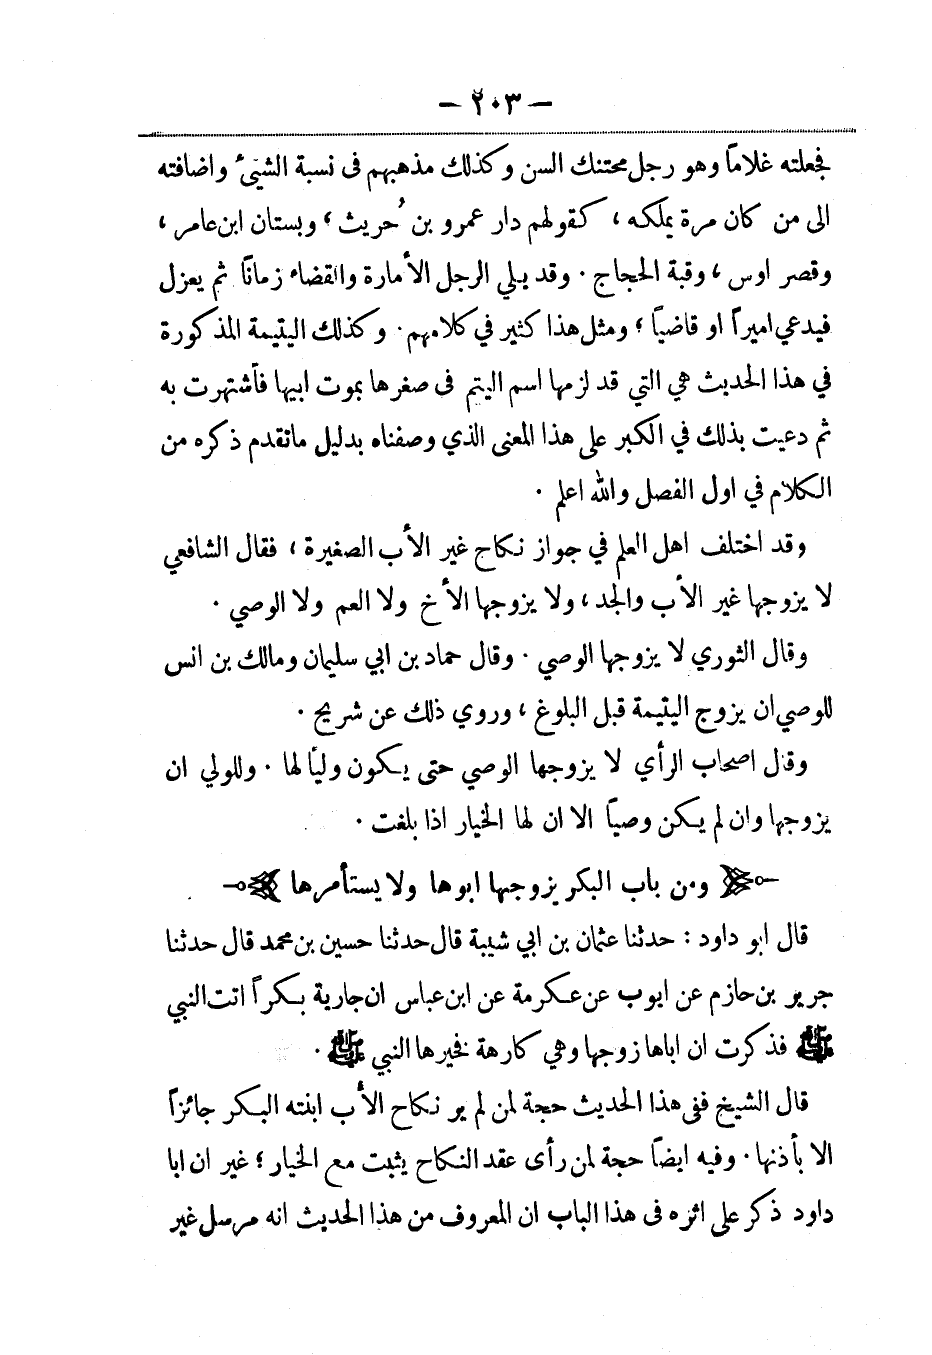 — ٢٠٣ —
فجعلته غلاماً وهو رجل محتنك السن وكذلك مذهبهم فى نسبة الشيئ واضافته
الى من كان مرة يملكه ، كقولهم دار عمرو بن حُريث ، وبستان ابن عامر ،
وقصر اوس ، وقبة الحجاج . وقد يلي الرجل الأمارة والقضاء زماناً ثم يعزل
فيدعي اميراً او قاضياً ؛ ومثل هذا كثير في كلامهم . وكذلك اليتيمة المذكورة
في هذا الحديث هي التي قد لزمها اسم اليتم فى صغرها بموت ابيها فأشتهرت به
ثم دعيت بذلك في الكبر على هذا المعنى الذي وصفناه بدليل ماتقدم ذكره من
الكلام في اول الفصل والله اعلم .
وقد اختلف اهل العلم في جواز نكاح غير الأب الصغيرة ، فقال الشافعي
لا يزوجها غير الأب والجد ، ولا يزوجها الأخ ولا العم ولا الوصي .
وقال الثوري لا يزوجها الوصي . وقال حماد بن ابي سليمان ومالك بن انس
للوصي ان يزوج اليتيمة قبل البلوغ ، وروي ذلك عن شريح .
وقال اصحاب الرأي لا يزوجها الوصي حتى يكون ولياً لها . وللولي ان
يزوجها وان لم يكن وصياً الا ان لها الخيار اذا بلغت .
ومن باب البكر يزوجها ابوها ولا يستأمرها
قال ابو داود : حدثنا عثمان بن ابي شيبة قال حدثنا حسين بن محمد قال حدثنا
جرير بن حازم عن ايوب عن عكرمة عن ابن عباس ان جارية بكراً اتت النبي
ﷺ فذكرت ان اباها زوجها وهي كارهة فخيرها النبي ﷺ .
قال الشيخ ففى هذا الحديث حجة لمن لم ير نكاح الأب ابنته البكر جائزاً
الا بأذنها . وفيه ايضاً حجة لمن رأى عقد النكاح يثبت مع الخيار ؛ غير ان ابا
داود ذكر على اثره فى هذا الباب ان المعروف من هذا الحديث انه مرسل غير